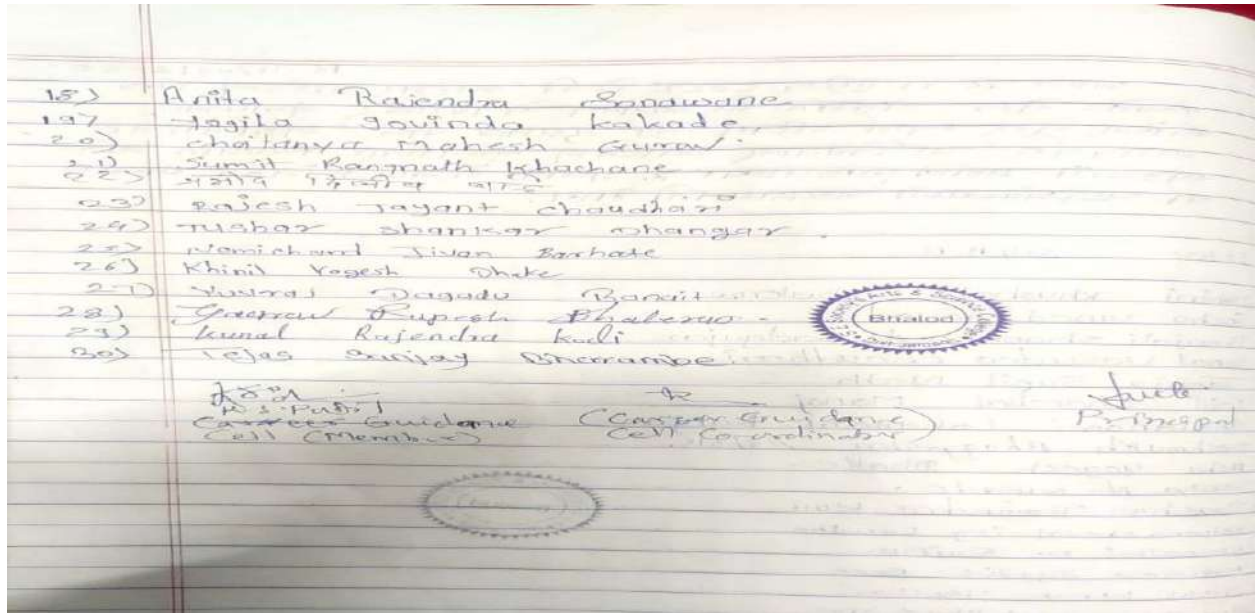 18) Anita Rajendra Sonawane
19) Jagila Govinda kakade
20) Chaitanya Mahesh Gurav
21) Sumit Rangnath Khachane
22)
23) Rajesh Jayant chaudhari
24) Tushar Shankar Dhangar.
25) Nemichand Jivan Barhate
26) Khinil Yogesh Dhake
27) Yuvraj Dagadu
28) Gaurav Rupesh Bhalerao
29) kunal Rajendra koli
30) Tejas Sanjay Bharambe
Bhalod
Career Guidance (Career Guidance Principal
Cell (Member) Cell Co-ordinator)